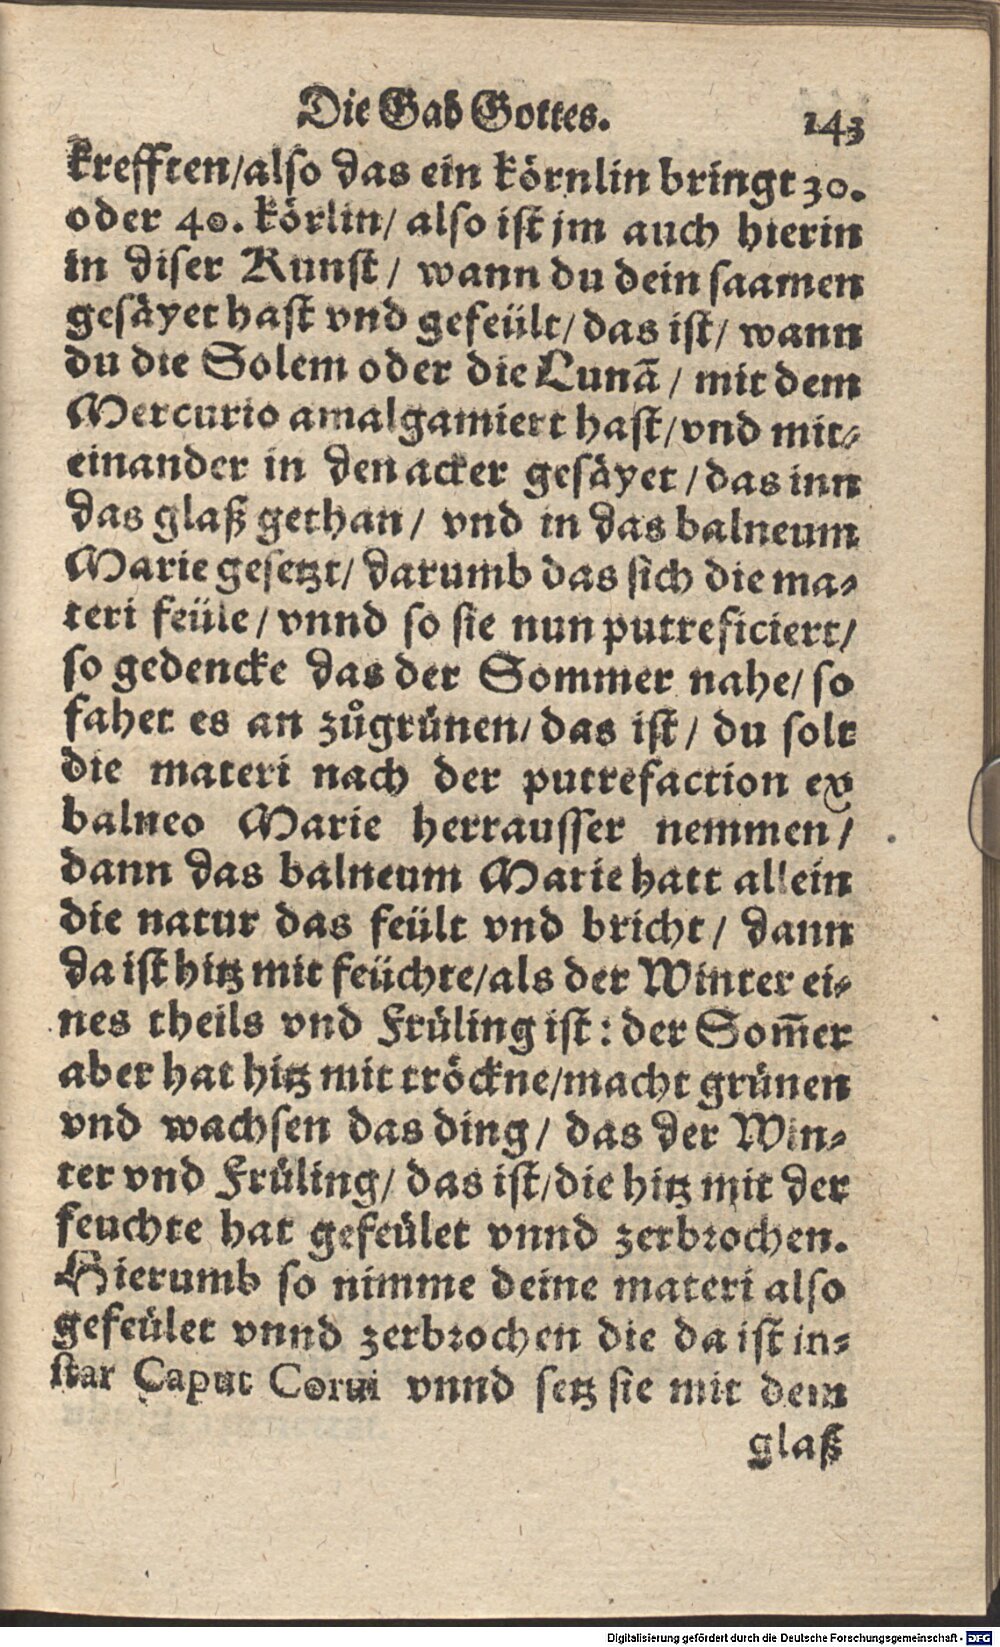 Die Gab Gottes. 143
krefften/also das ein körnlin bringt 30.
oder 40. körlin/ also ist jm auch hierin
in diser Kunst/ wann du dein saamen
gesäyet hast vnd gefeült/ das ist/ wann
du die Solem oder die Lunã/ mit dem
Mercurio amalgamiert hast/vnd mit-
einander in den acker gesäyet/das inn
das glaß gethan/ vnd in das balneum
Marie gesetzt/ darumb das sich die ma-
teri feüle/vnnd so sie nun putreficiert/
so gedencke das der Sommer nahe/ so
fahet es an zůgrünen/das ist/ du solt
die materi nach der putrefaction ex
balneo Marie herrausser nemmen/
dann das balneum Marie hatt allein
die natur das feült vnd bricht/ dann
da ist hitz mit feüchte/als der Winter ei-
nes theils vnd Früling ist: der Som̃er
aber hat hitz mit tröckne/macht grünen
vnd wachsen das ding/ das der Win-
ter vnd Früling/ das ist/die hitz mit der
feuchte hat gefeület vnnd zerbrochen.
Hierumb so nimme deine materi also
gefeület vnnd zerbrochen die da ist in-
star Caput Corui vnnd setz sie mit dem
glaß
Digitalisierung gefördert durch die Deutsche Forschungsgemeinschaft - DFG